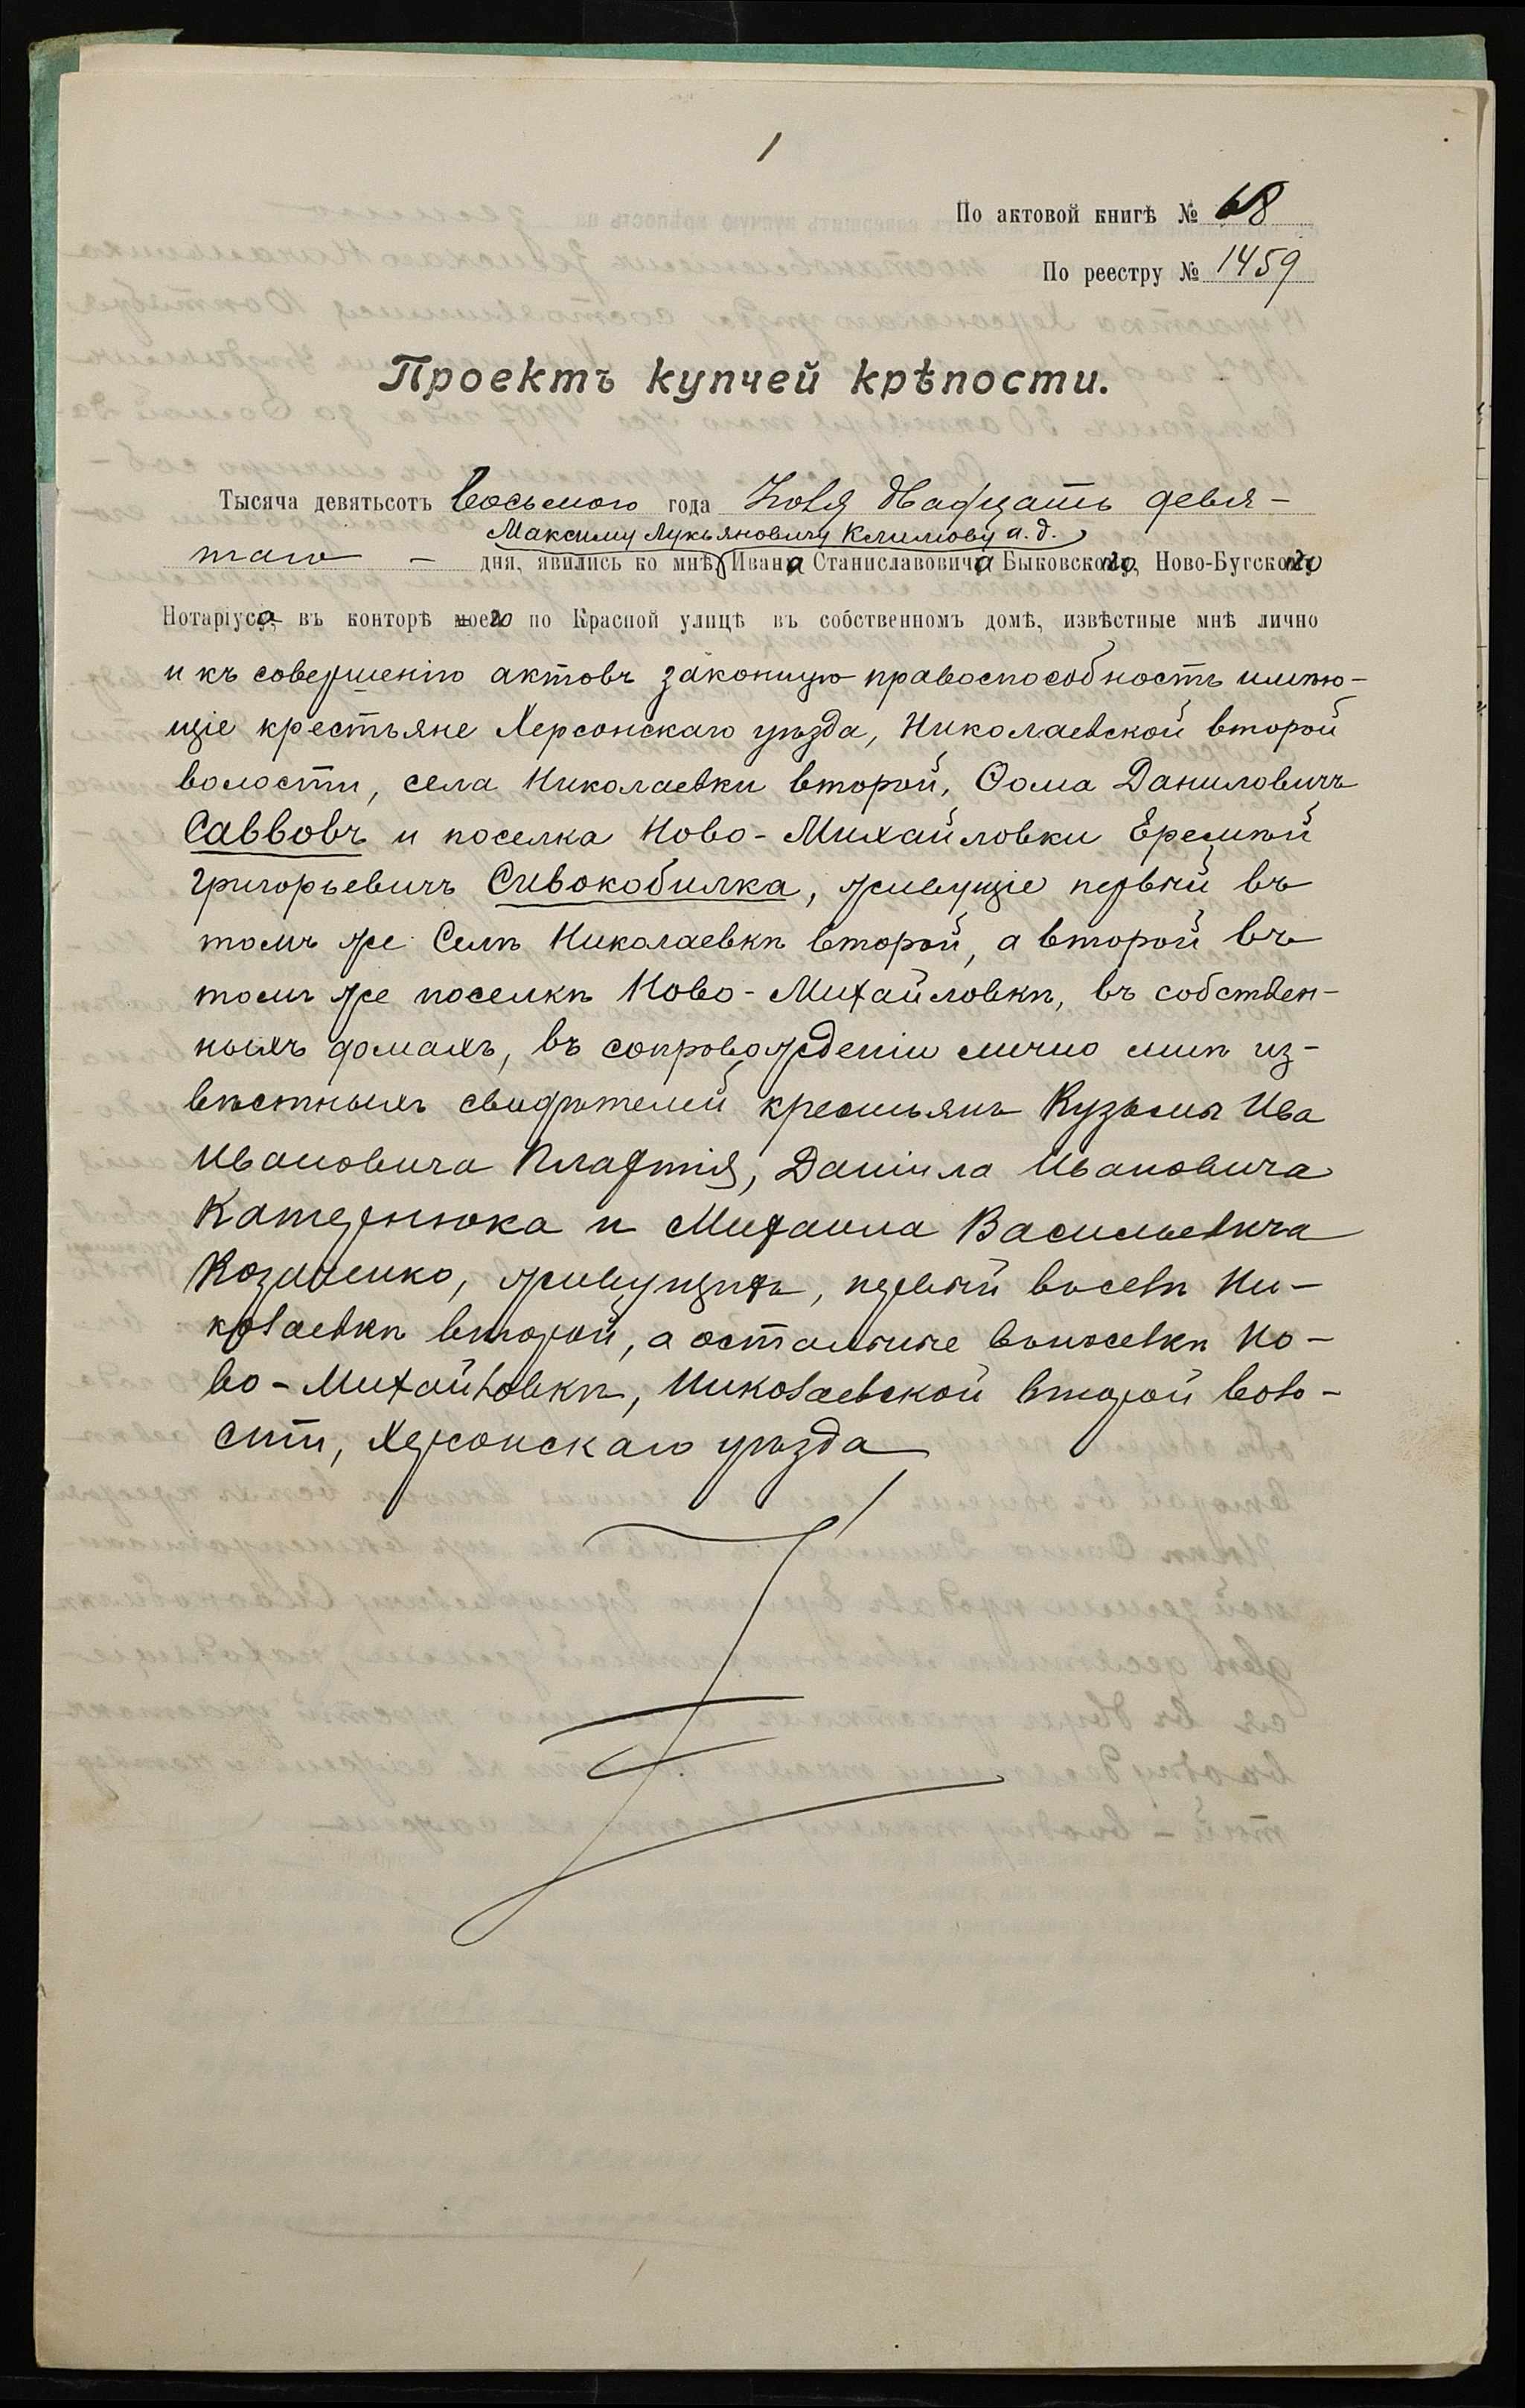 1
По актовой книгѣ № 68
По реестру № 1459
Проектъ купчей крѣпости.
Тысяча девятьсотъ восьмого года Іюля двадцать девя-
Максиму Лукьяновичу Климову и. д.
таго — дня, явились ко мнѣ, Ивана Станиславовича Быковского, Ново-Бугского
Нотаріуса, въ конторѣ моего по Красной улицѣ въ собственномъ домѣ, извѣстные мнѣ лично
и къ совершенію актовъ законную правоспособность имѣю-
щіе крестьяне Херсонскаго уѣзда, Николаевской второй
волости, села Николаевки второй, Ѳома Даниловичъ
Саввовъ и поселка Ново-Михайловки Еремѣй
Григорьевичъ Сивокобилка, живущіе первый въ
томъ же селѣ Николаевкѣ второй, а второй въ
томъ же поселкѣ Ново-Михайловкѣ, въ собствен-
ныхъ домахъ, въ сопровожденіи лично мнѣ из-
вѣстныхъ свидѣтелей крестьянъ Кузьмы Ива
Ивановича Плахтія, Даніила Ивановича
Катеренюка и Михаила Васильевича
Козаченко, живущихъ, первый въ селѣ Ни-
колаевкѣ второй, а остальные въ поселкѣ Но-
во-Михайловкѣ, Николаевской второй воло-
сти, Херсонскаго уѣзда